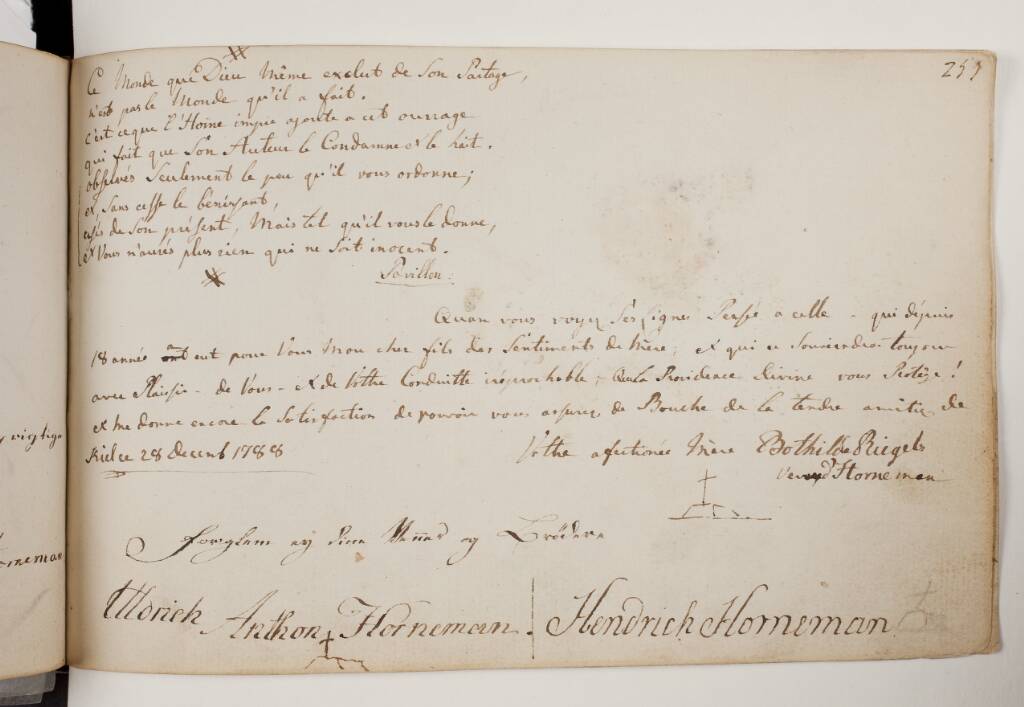 259
Ce Monde que Dieu Même exclut de Son Partage,
n'est pas le Monde qu'il a fait.
c'est ce que l'Hoine impie ajoute a cet ouvrage
qui fait que Son Auteur le Condamne et le hait.
observés Seulement le peu qu'il vous ordonne;
et, Sans cesse le bénissant,
usés de Son présent, Mais tel qu'il vous le donne,
et Vous n'aurés plus rien qui ne Soit inocent.
Pavillon:
Quan vous voyez Ses Lignes Pensé a celle - qui dépuis
18 année ont eut pour Vous Mon cher fils des Sentiments de Mère; et qui ce Souviendra toujour
avec Plaisir - de Vous - et de Vothe Conduitte iréprochable; Que la Providence divine vous Protége!
et me donne encore la Satisfaction de pouvoir vous assurez de Bouche de la tendre amitiez de
Kiel ce 28 Decemb 1788
Vothe afectionée Mère Bothilde Riegels
Horneman
Forglem ey dine Venner og Brödere
Ulldrich Anthon Horneman.
Hendrich Horneman
vigtige
orneman